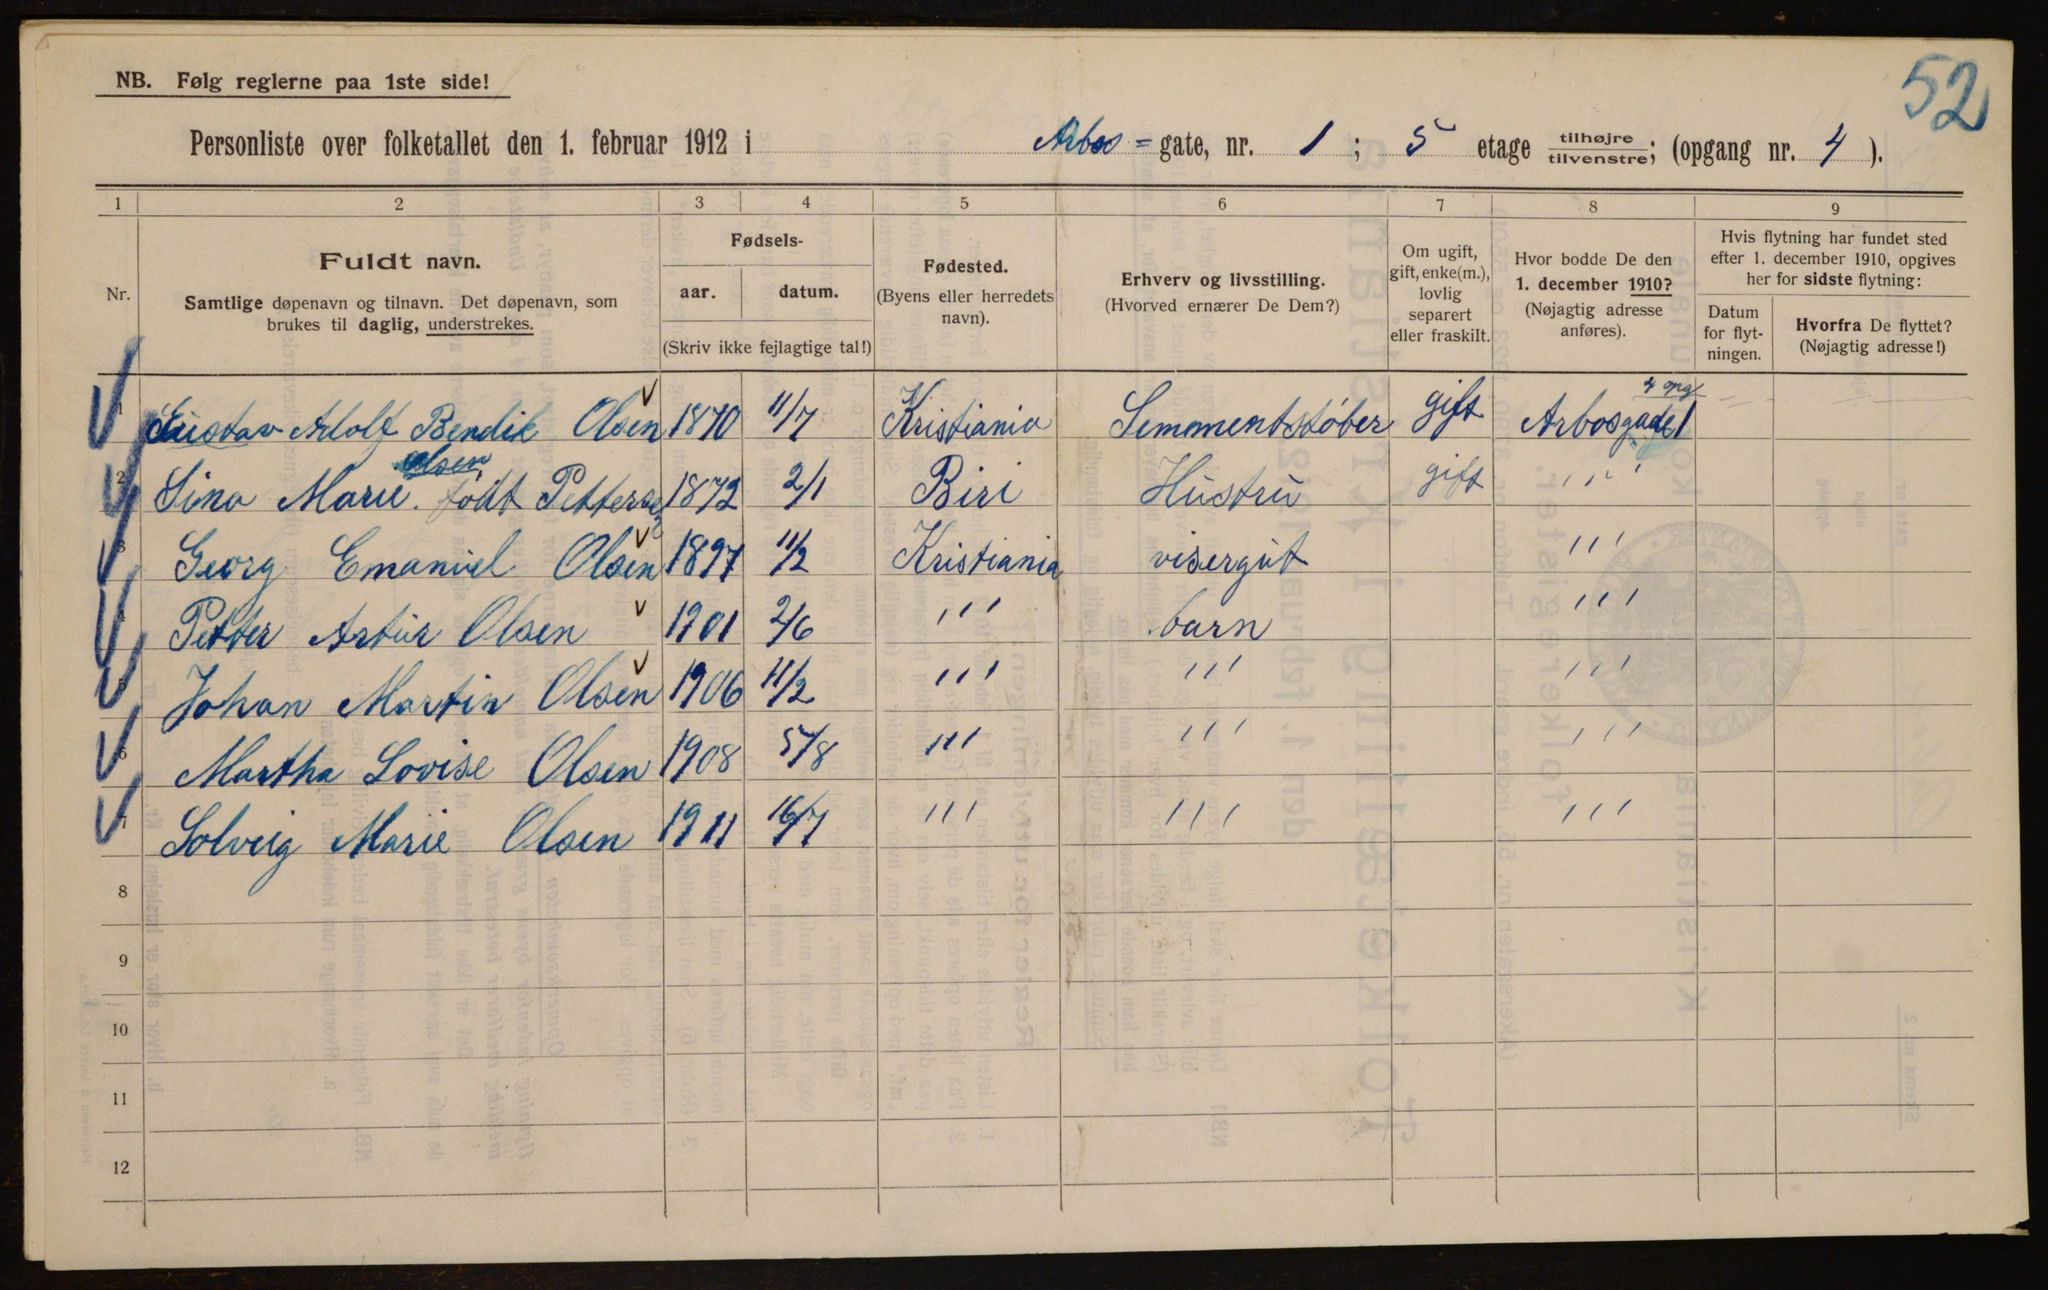 52
NB. Følg reglerne paa 1ste side!
Personliste over folketallet den 1. februar 1912 i Arbos = gate, nr. 1 ; 5 etage tilhøjre/tilvenstre; (opgang nr. 4 ).
1 2 3 4 5 6 7 8 9
Nr.
Fuldt navn.
Samtlige døpenavn og tilnavn. Det døpenavn, som
brukes til daglig, understrekes.
Fødsels-
aar. datum.
(Skriv ikke fejlagtige tal!)
Fødested.
(Byens eller herredets
navn).
Erhverv og livsstilling.
(Hvorved ernærer De Dem?)
Om ugift,
gift, enke(m.),
lovlig
separert
eller fraskilt.
Hvor bodde De den
1. december 1910?
(Nøjagtig adresse
anføres).
Hvis flytning har fundet sted
efter 1. december 1910, opgives
her for sidste flytning:
Datum
for flyt-
ningen.
Hvorfra De flyttet?
(Nøjagtig adresse!)
4 opg
1 Gustav Adolf Bendik Olsen 1870 11/7 Kristiania Sementstøber gift Arbosgade 1
Olsen
2 Sina Marie. født Pettersen 1872 2/1 Biri Hustru gift " '
3 Georg Emanuel Olsen 1897 11/2 Kristiania visergut " '
4 Petter Artur Olsen 1901 2/6 " ' barn " '
5 Johan Martin Olsen 1906 11/2 " ' " ' " '
6 Martha Lovise Olsen 1908 5/8 " ' " ' " '
7 Solveig Marie Olsen 1911 16/7 " ' " ' " '
8
9
10
11
12